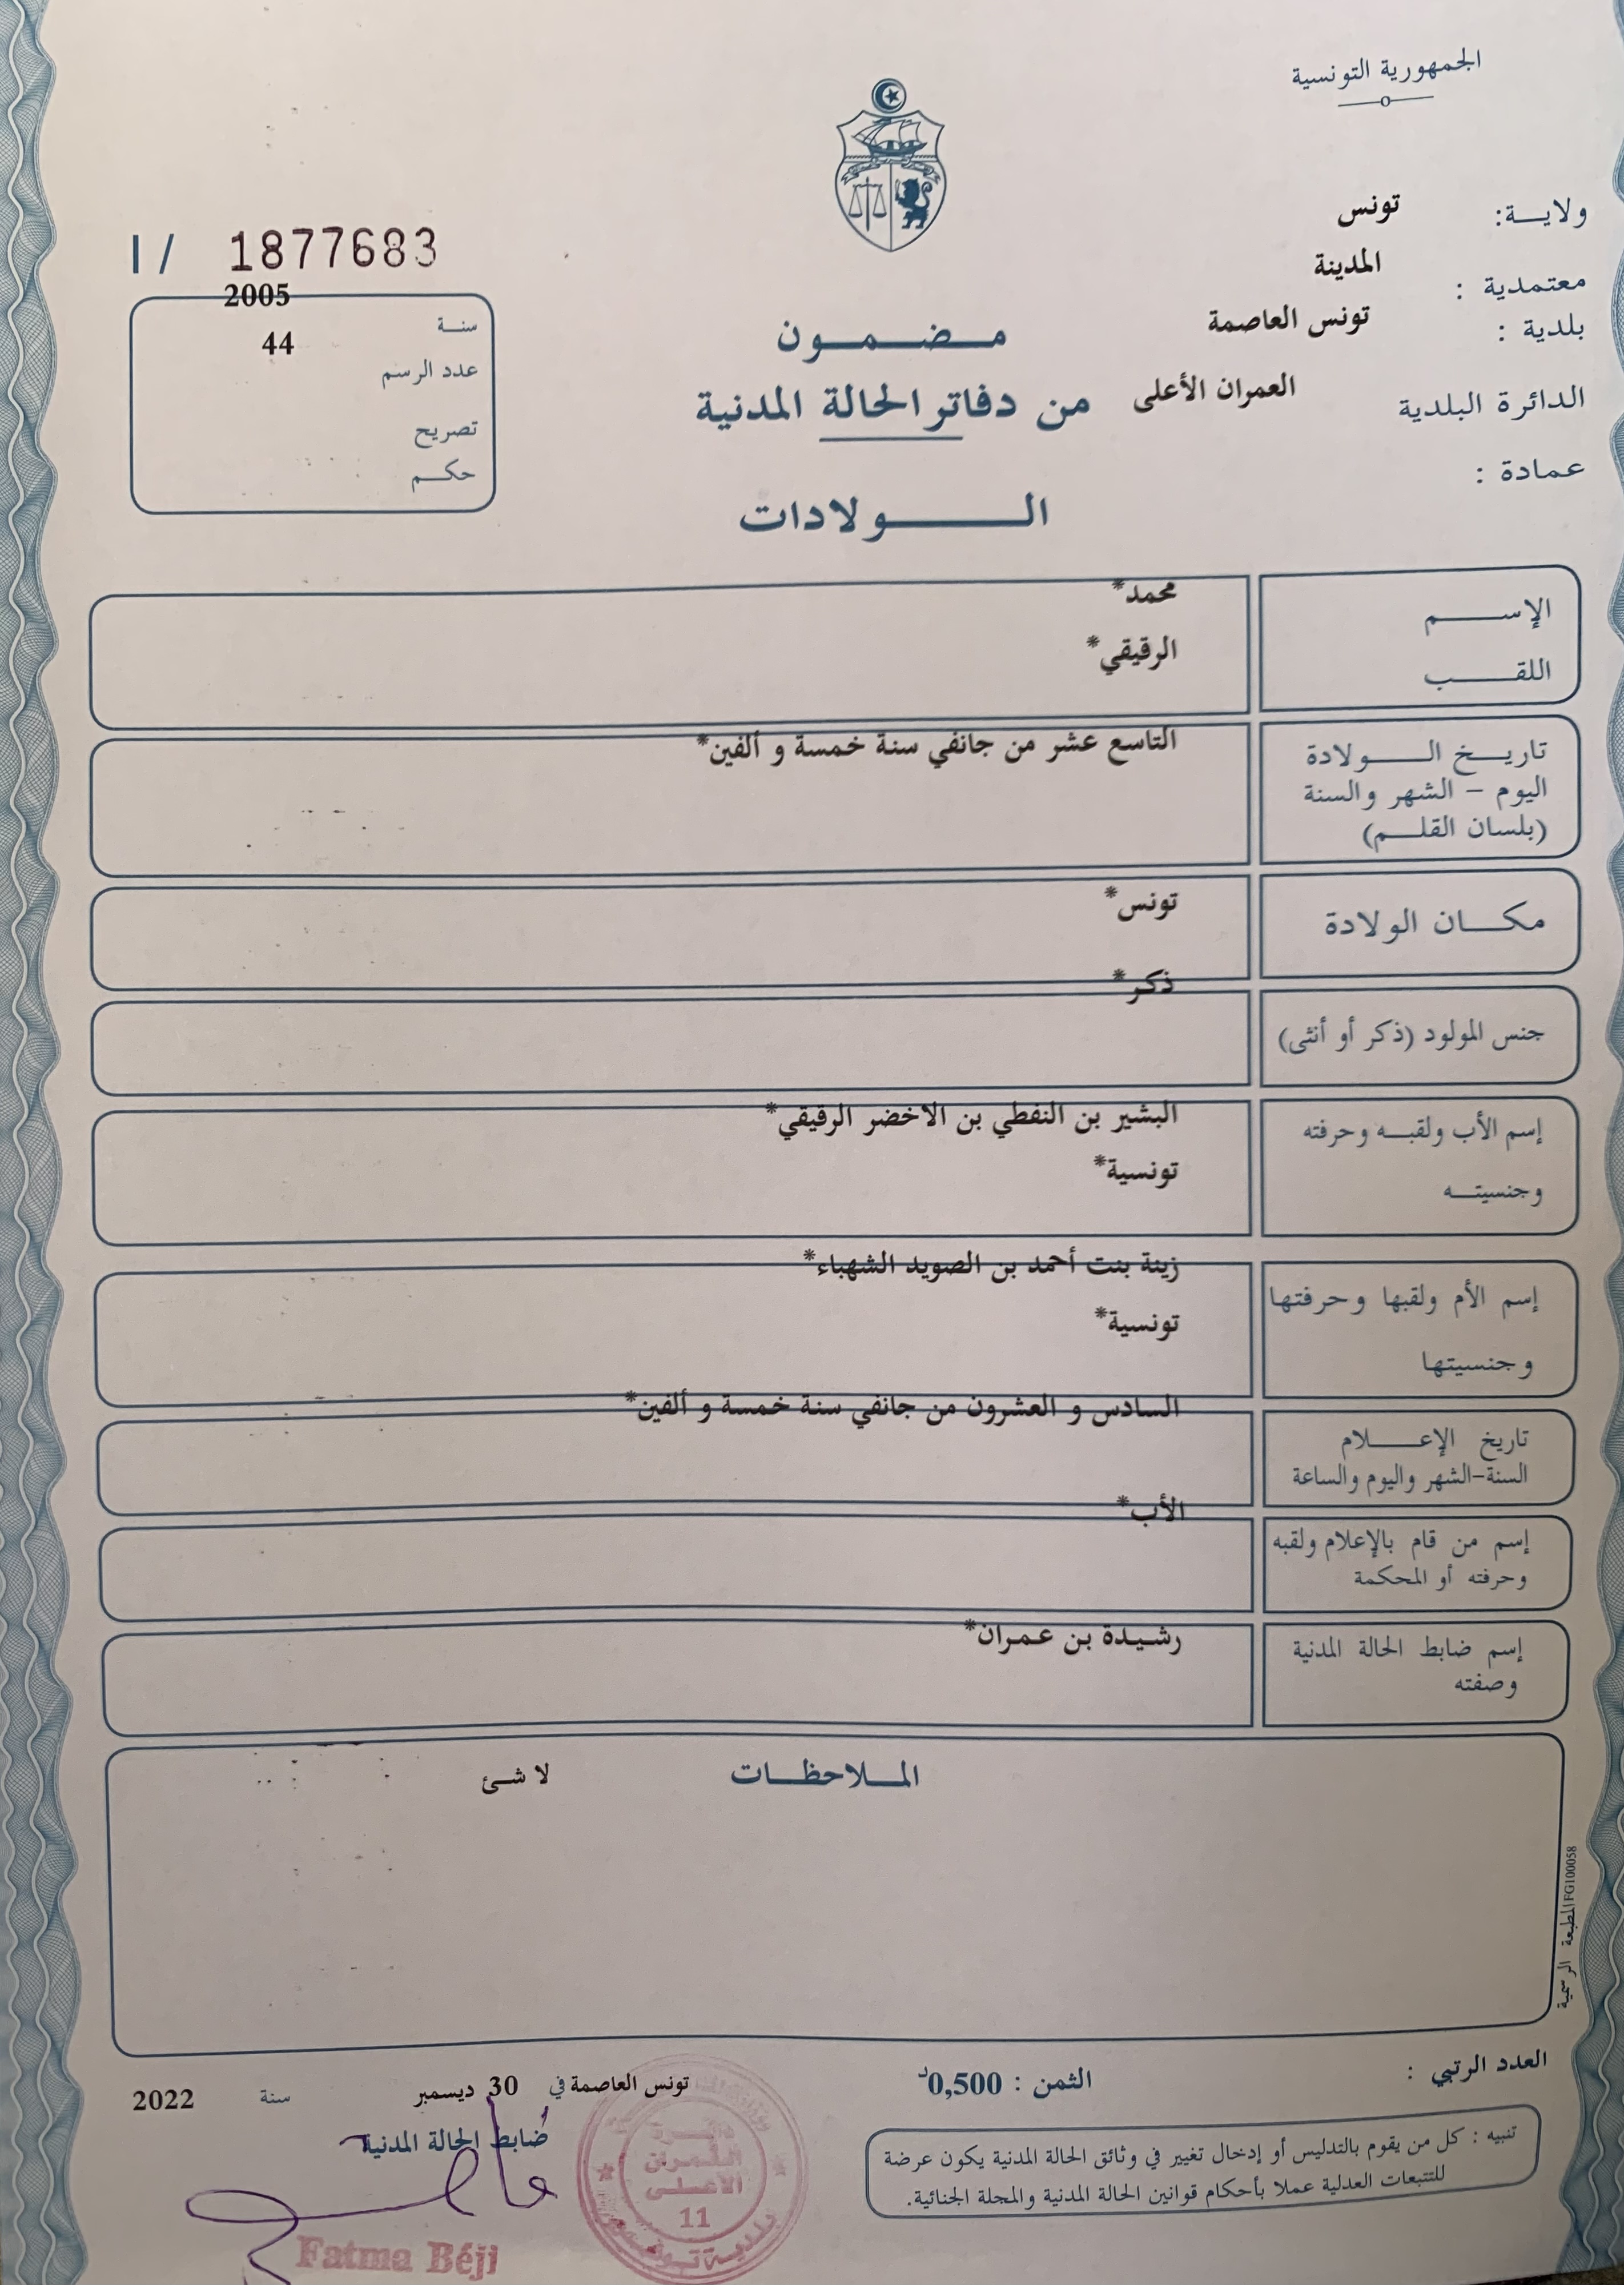 الجمهورية التونسية
ولاية: تونس
معتمدية : المدينة
بلدية : تونس العاصمة
الدائرة البلدية العمران الأعلى
عمادة :
I / 1877683
سنة 2005
عدد الرسم 44
تصريح
حكم
مضمون
من دفاتر الحالة المدنية
الولادات
الإسم محمد*
اللقب الرقيقي*
تاريخ الولادة التاسع عشر من جانفي سنة خمسة و ألفين*
اليوم - الشهر والسنة
(بلسان القلم)
مكان الولادة تونس*
جنس المولود (ذكر أو أنثى) ذكر*
إسم الأب ولقبه وحرفته البشير بن النفطي بن الاخضر الرقيقي*
وجنسيته تونسية*
إسم الأم ولقبها وحرفتها زينة بنت أحمد بن الصويد الشهباء*
وجنسيتها تونسية*
تاريخ الإعلام السادس و العشرون من جانفي سنة خمسة و ألفين*
السنة-الشهر واليوم والساعة
إسم من قام بالإعلام ولقبه الأب*
وحرفته أو المحكمة
إسم ضابط الحالة المدنية رشيدة بن عمران*
وصفته
الملاحظات لا شئ
المطبعة الرسمية FG100058
العدد الرتبي :
الثمن : 0,500د
تونس العاصمة في 30 ديسمبر سنة 2022
ضابط الحالة المدنية
تنبيه : كل من يقوم بالتدليس أو إدخال تغيير في وثائق الحالة المدنية يكون عرضة
للتتبعات العدلية عملا بأحكام قوانين الحالة المدنية والمجلة الجنائية.
دائرة
العمران
الأعلى
11
بلدية تونس
Fatma Béji